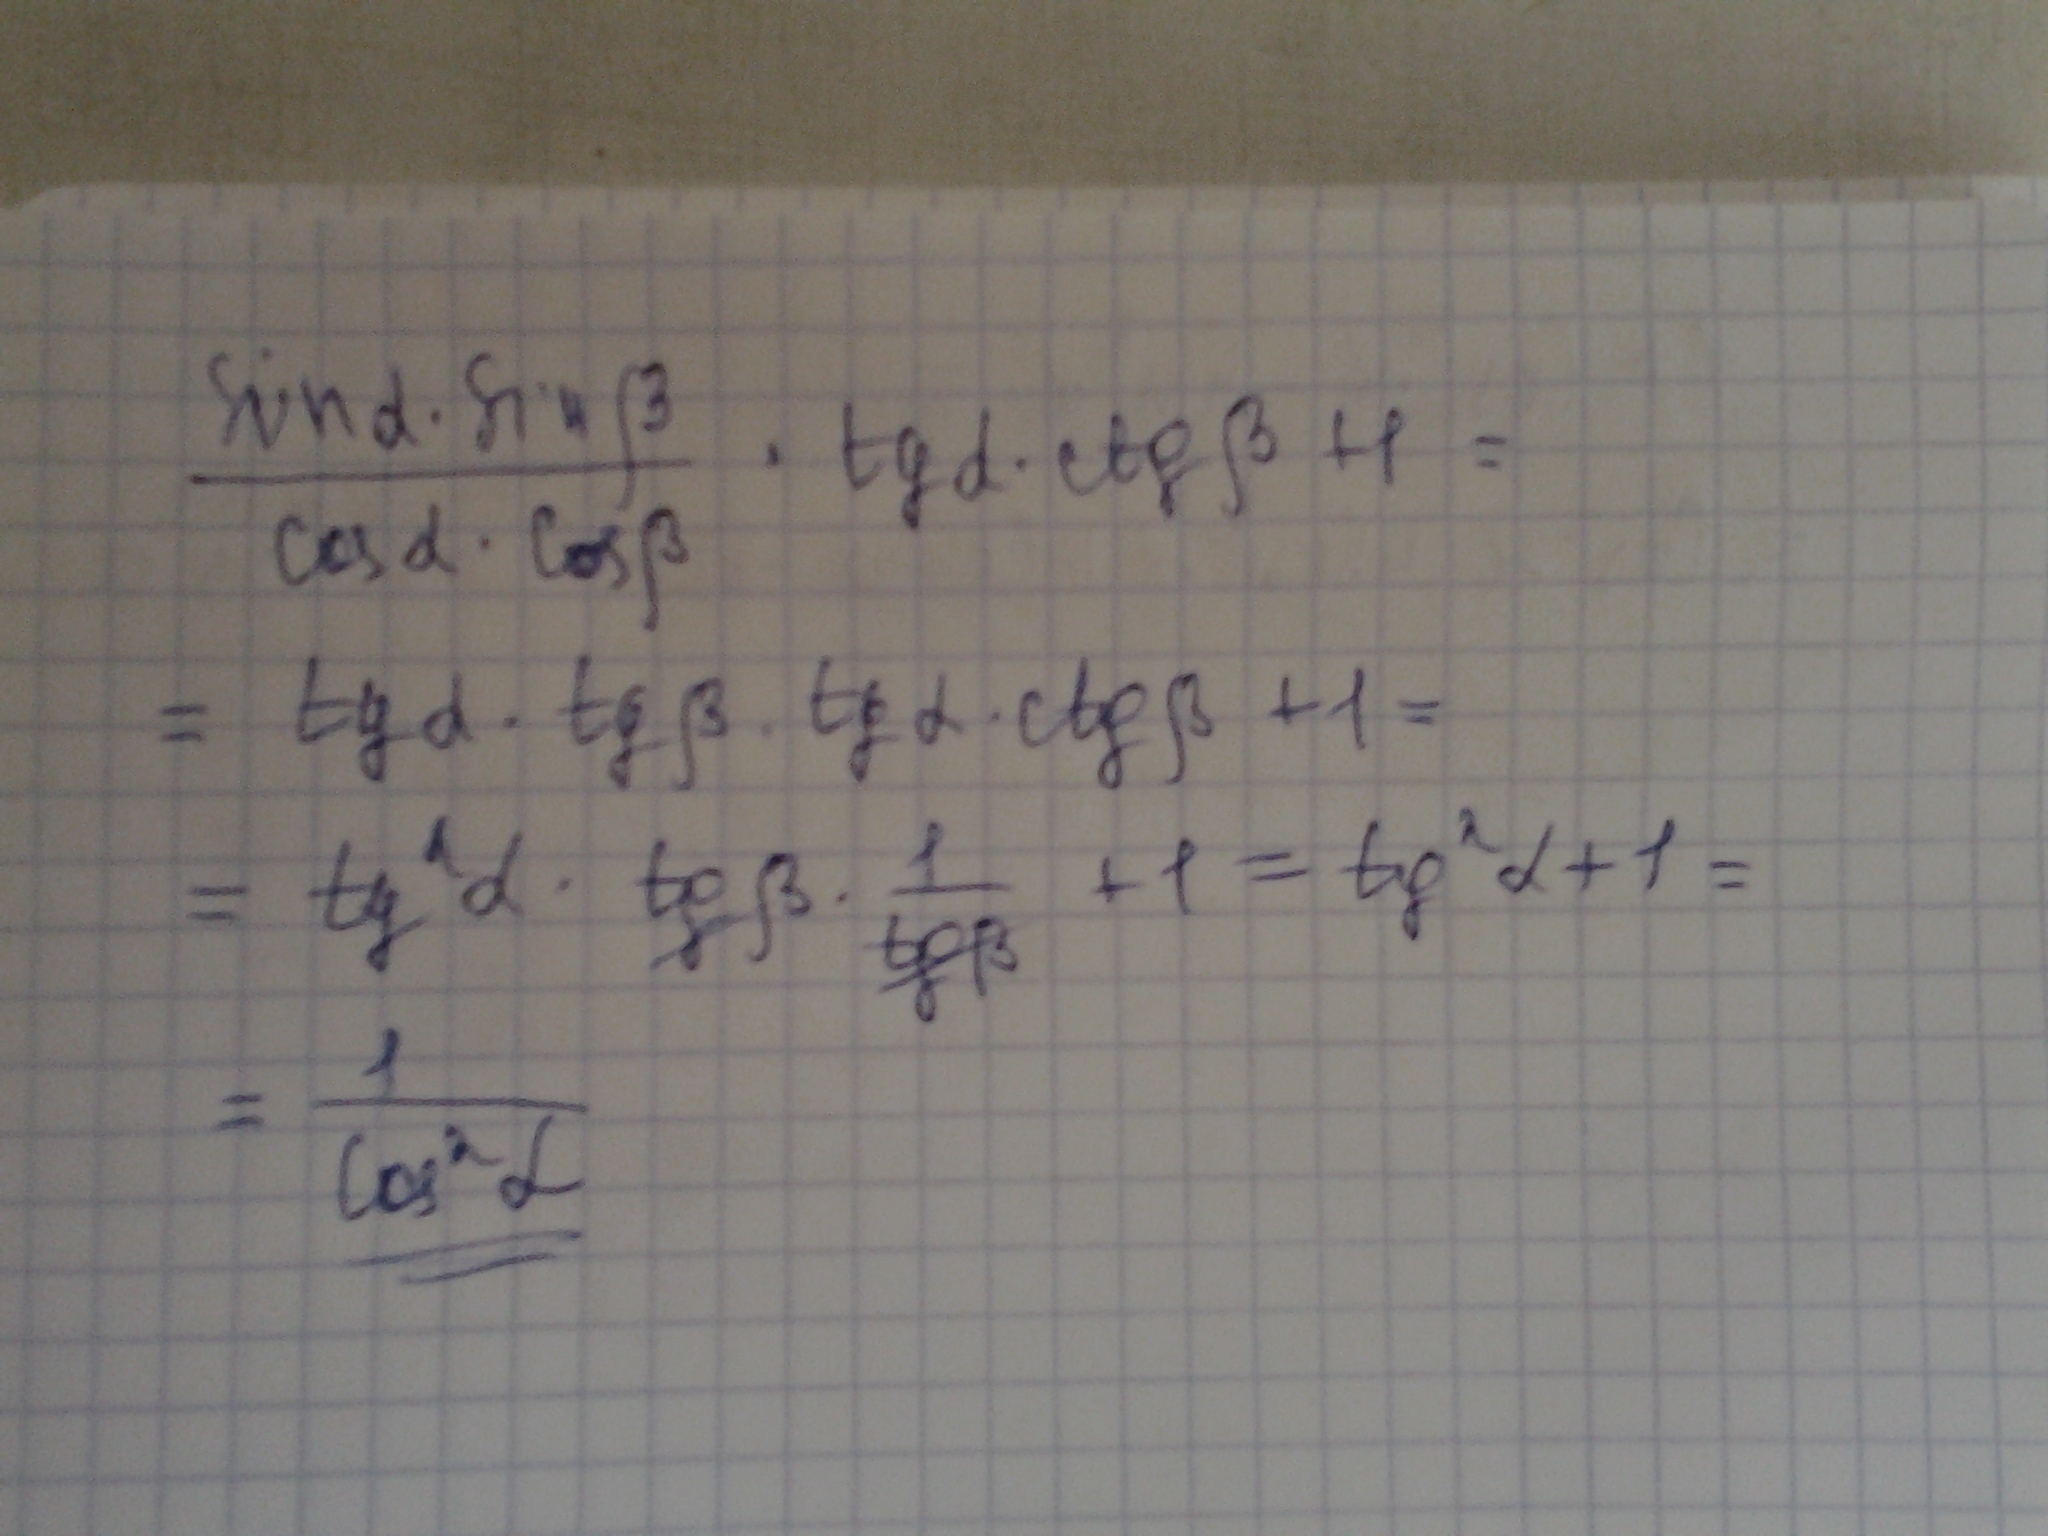 sin α · sin β / cos α · cos β · tg α · ctg β + 1 =
= tg α · tg β · tg α · ctg β + 1 =
= tg² α · tg β · 1 / tg β + 1 = tg² α + 1 =
= 1 / cos² α